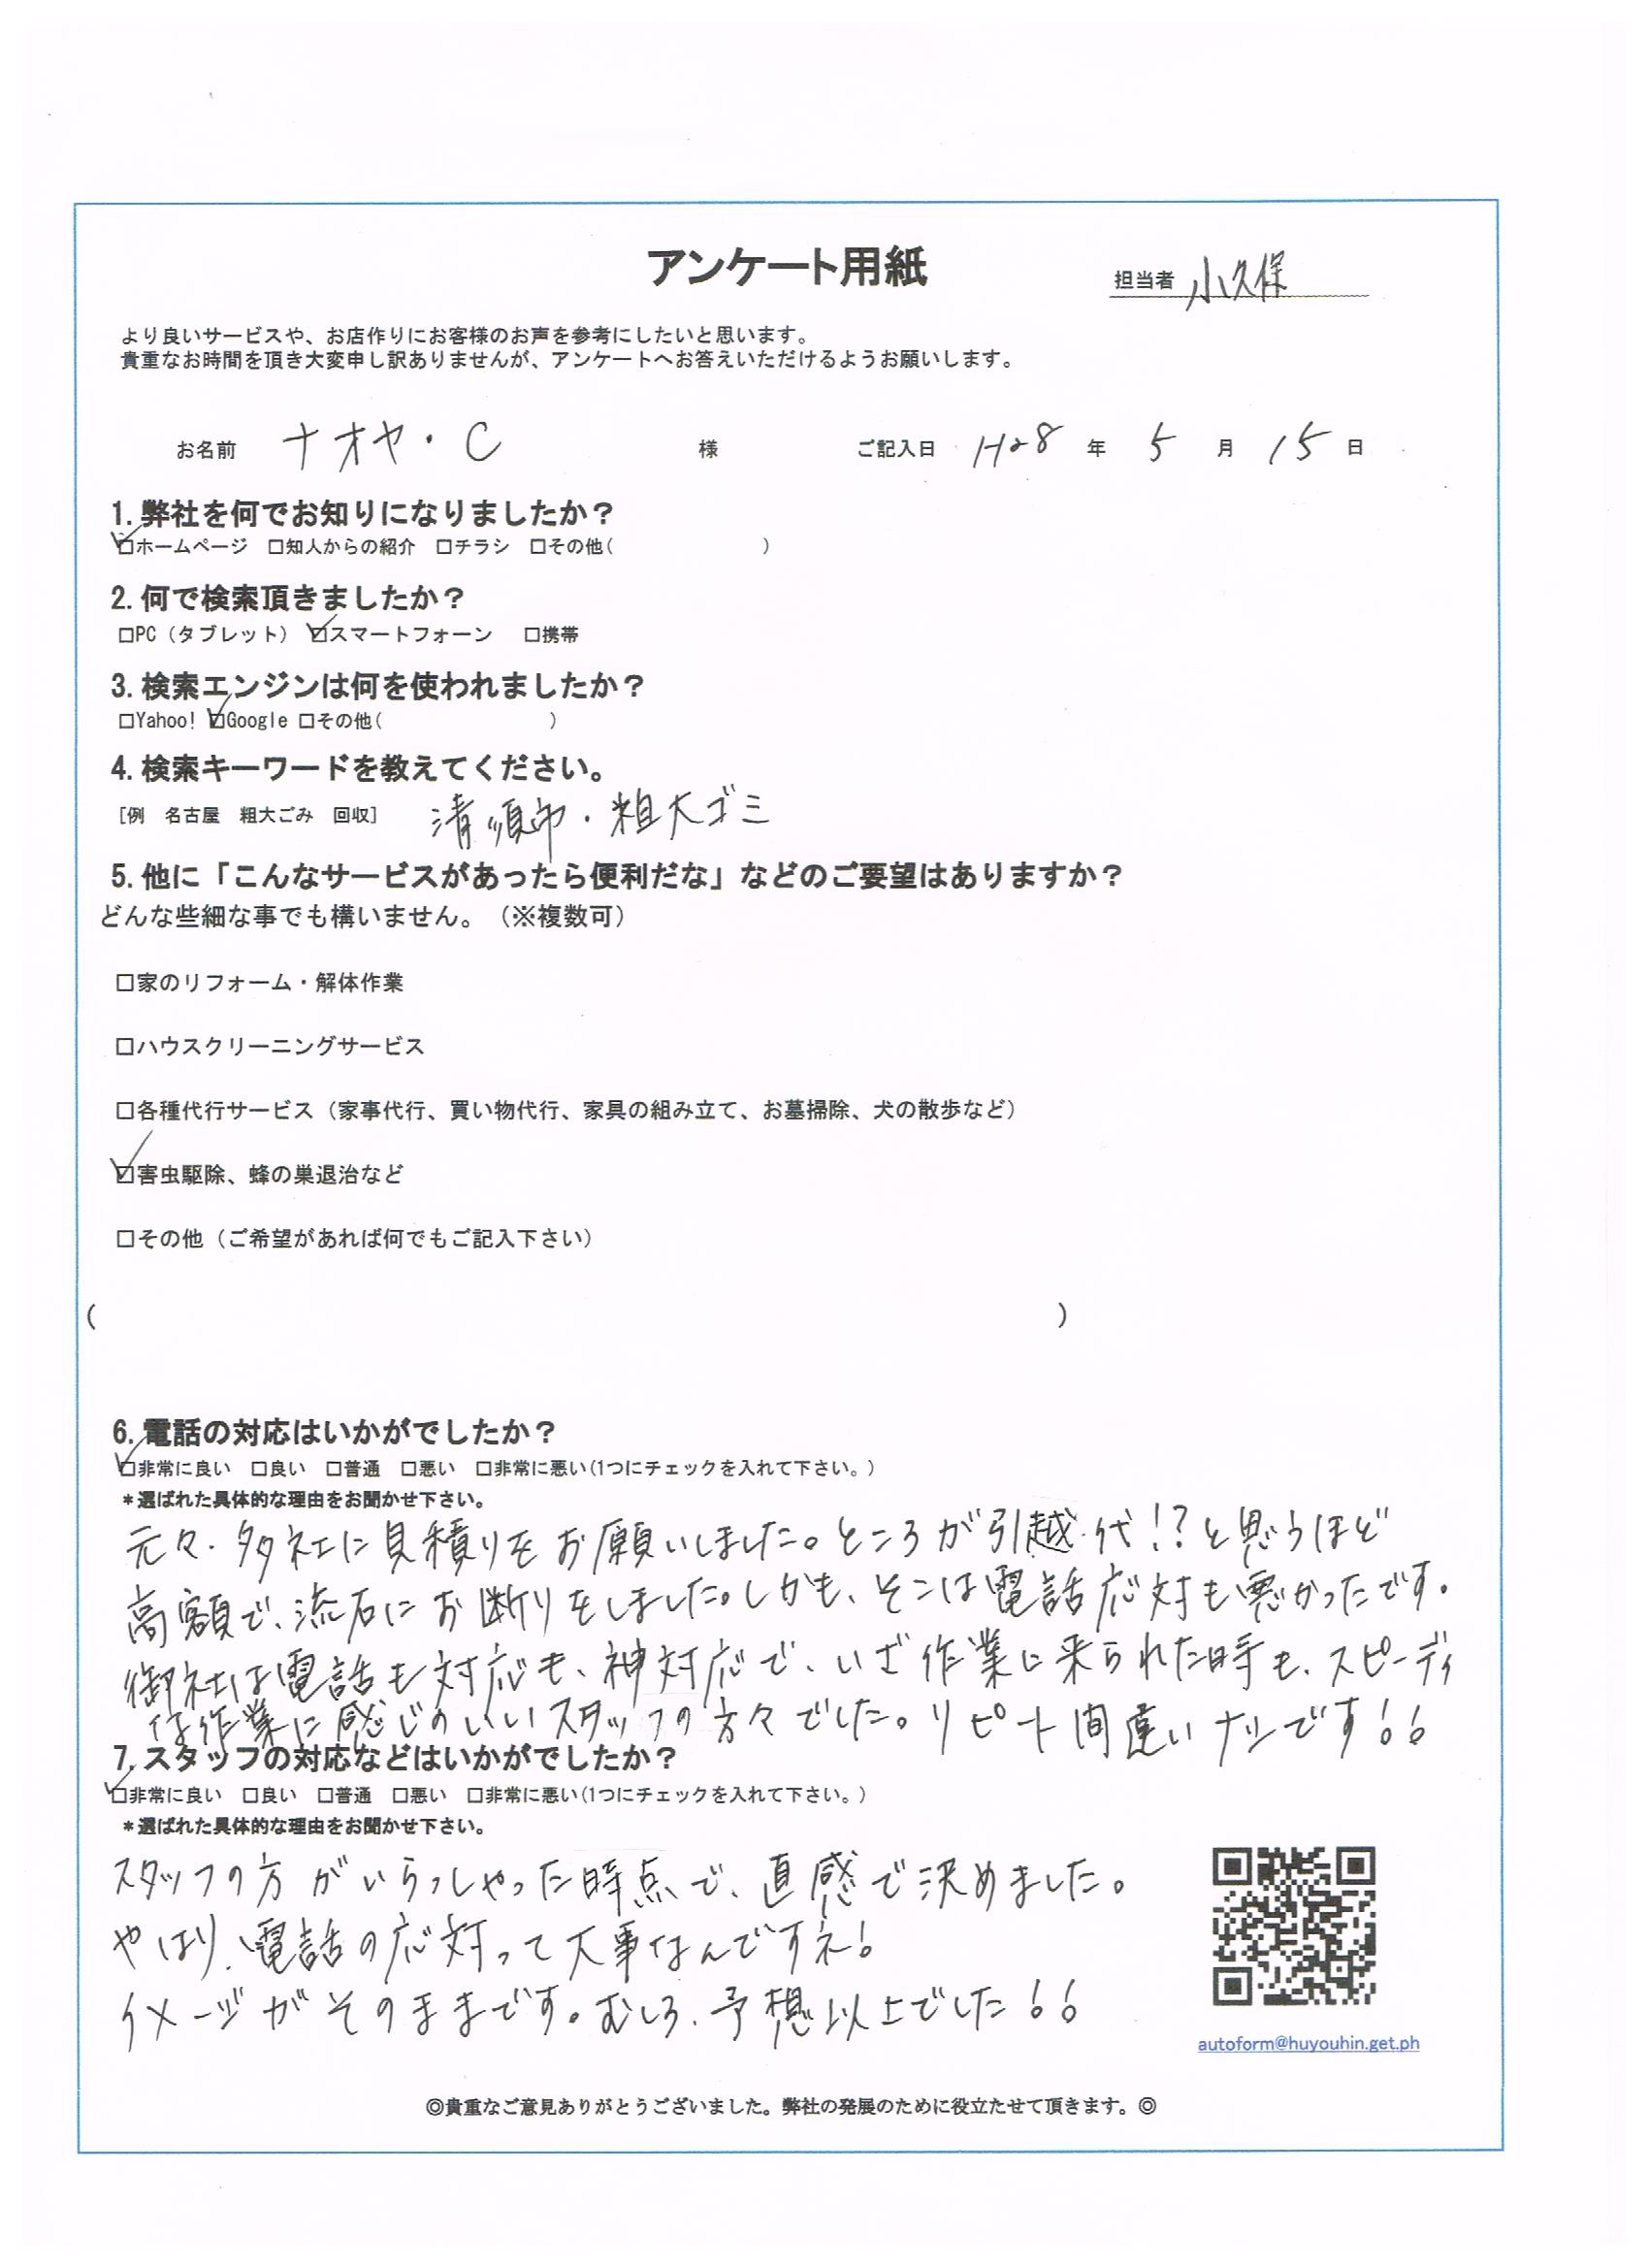 アンケート用紙
担当者 小久保
より良いサービスや、お店作りにお客様のお声を参考にしたいと思います。
貴重なお時間を頂き大変申し訳ありませんが、アンケートへお答えいただけるようお願いします。
お名前 ナオヤ・C 様 ご記入日 H28 年 5 月 15 日
1. 弊社を何でお知りになりましたか？
☑ホームページ □知人からの紹介 □チラシ □その他( )
2. 何で検索頂きましたか？
□PC（タブレット） ☑スマートフォーン □携帯
3. 検索エンジンは何を使われましたか？
□Yahoo! ☑Google □その他( )
4. 検索キーワードを教えてください。
[例 名古屋 粗大ごみ 回収] 清須市・粗大ゴミ
5. 他に「こんなサービスがあったら便利だな」などのご要望はありますか？
どんな些細な事でも構いません。（※複数可）
□家のリフォーム・解体作業
□ハウスクリーニングサービス
□各種代行サービス（家事代行、買い物代行、家具の組み立て、お墓掃除、犬の散歩など）
☑害虫駆除、蜂の巣退治など
□その他（ご希望があれば何でもご記入下さい）
( )
6. 電話の対応はいかがでしたか？
☑非常に良い □良い □普通 □悪い □非常に悪い(1つにチェックを入れて下さい。)
＊選ばれた具体的な理由をお聞かせ下さい。
元々、多社に見積りをお願いしました。ところが引越代！？と思うほど
高額で、流石にお断りをしました。しかも、そこは電話応対も悪かったです。
御社は電話も対応も、神対応で、いざ作業に来られた時も、スピーディ
な作業に感じのいいスタッフの方々でした。リピート間違いナシです！！
7. スタッフの対応などはいかがでしたか？
☑非常に良い □良い □普通 □悪い □非常に悪い(1つにチェックを入れて下さい。)
＊選ばれた具体的な理由をお聞かせ下さい。
スタッフの方がいらっしゃった時点で、直感で決めました。
やはり、電話の応対って大事なんですネ！
イメージがそのままです。むしろ、予想以上でした！！
autoform@huyouhin.get.ph
◎貴重なご意見ありがとうございました。弊社の発展のために役立たせて頂きます。◎